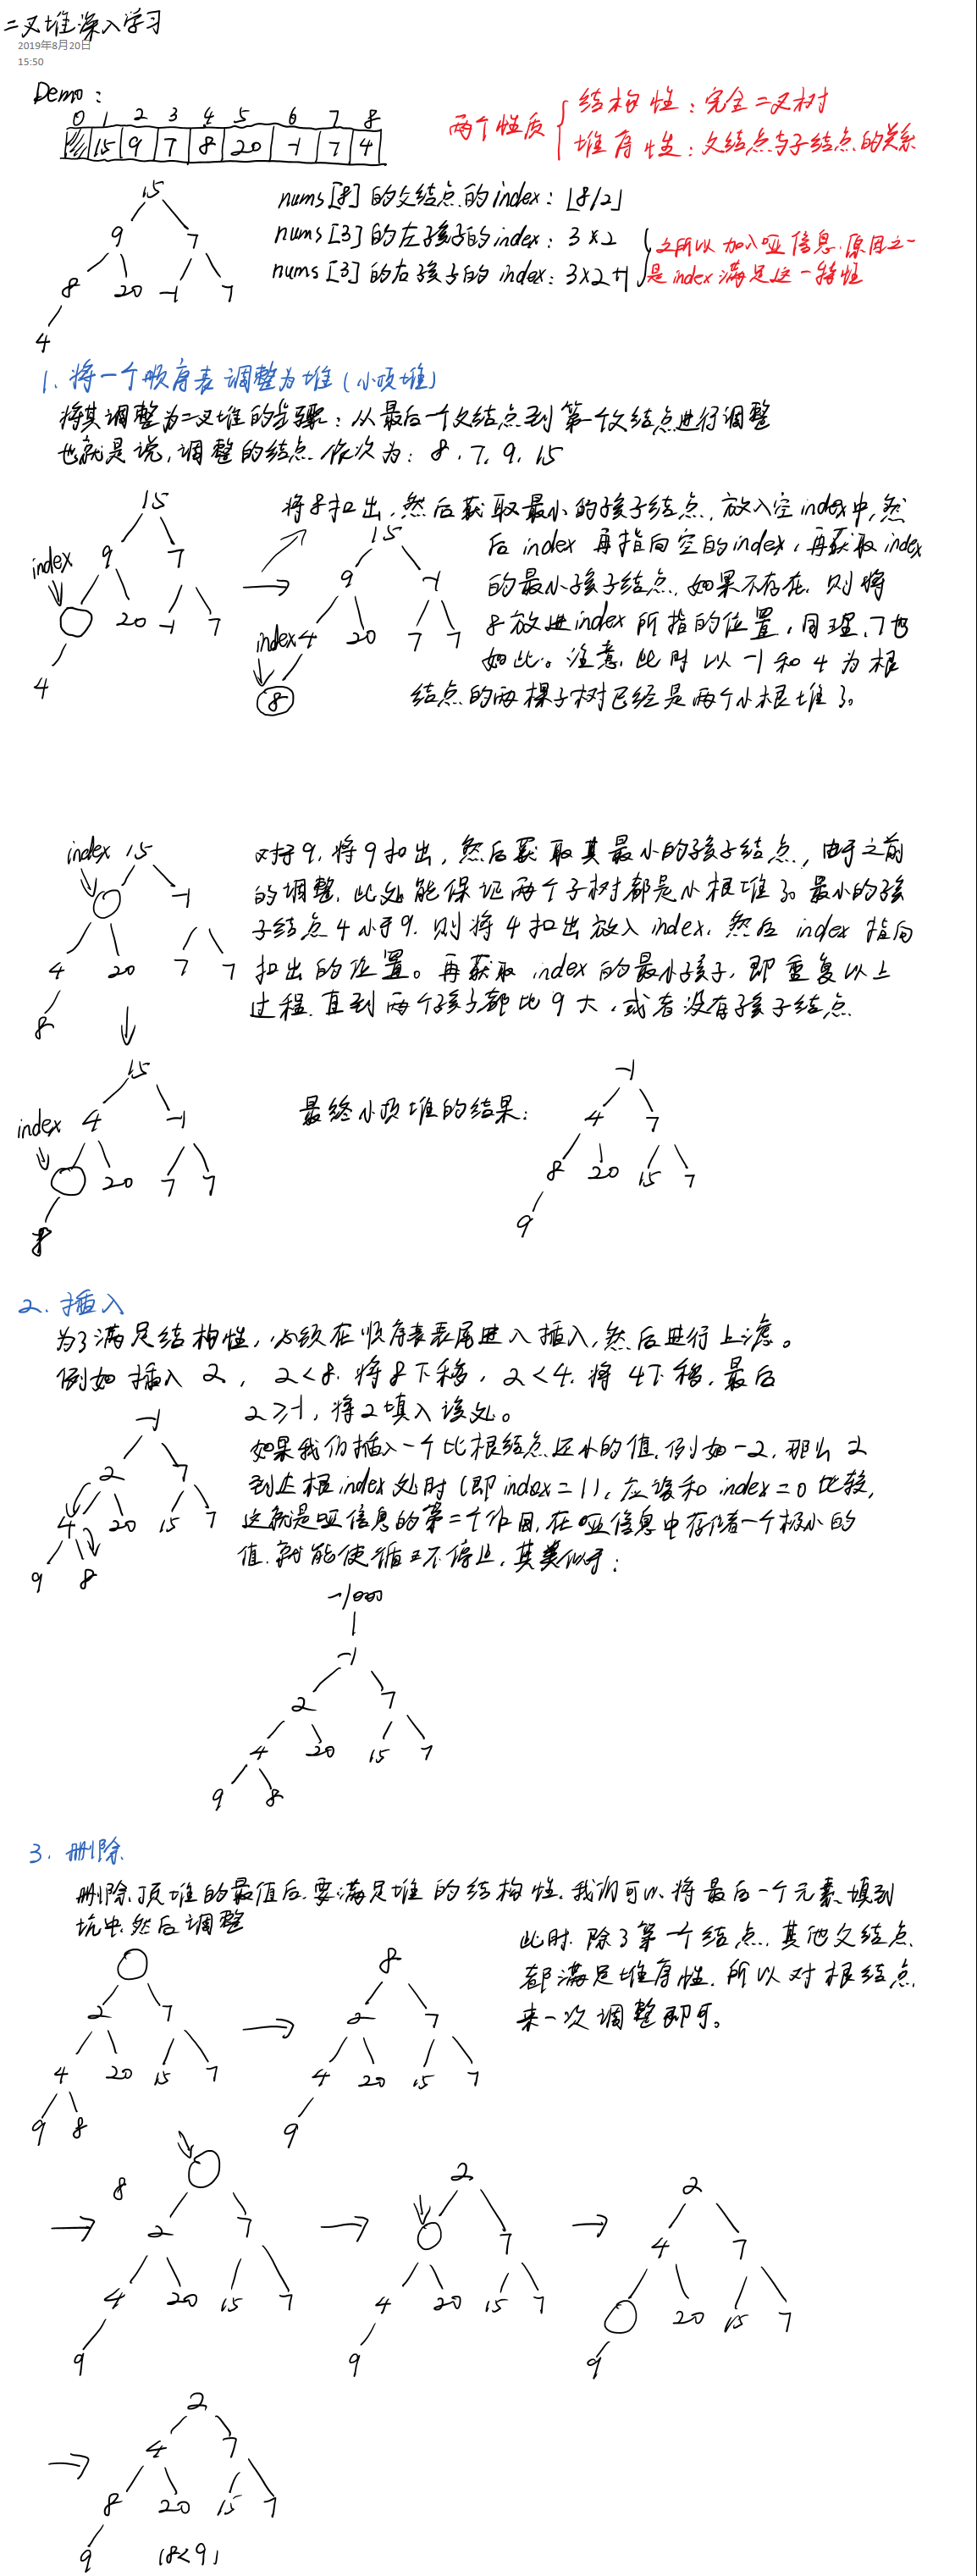 二叉堆深入学习
2019年8月20日
15:50
Demo：
0 1 2 3 4 5 6 7 8
15 9 7 8 20 -1 7 4
两个性质
结构性：完全二叉树
堆序性：父结点与子结点的关系
15
9 7
8 20 -1 7
4
nums[8]的父结点的index：⌊8/2⌋
nums[3]的左孩子的index：3×2
nums[3]的右孩子的index：3×2+1
之所以加入哑信息，原因之一
是index满足这一特性
1. 将一个顺序表调整为堆（小顶堆）
将其调整为二叉堆的步骤：从最后一个父结点到第一个父结点进行调整
也就是说，调整的结点依次为：8，7，9，15
15
index 9 7
20 -1 7
4
将8扣出，然后获取最小的孩子结点，放入空index中，然
后index再指向空的index，再获取index
的最小孩子结点，如果不存在，则将
8放进index所指的位置，同理，7也
如此。注意，此时以-1和4为根
结点的两棵子树已经是两个小根堆了。
15
9 -1
index 4 20 7 7
8
index 15
-1
4 20 7 7
8
对于9，将9扣出，然后获取其最小的孩子结点，由于之前
的调整，此处能保证两个子树都是小根堆了。最小的孩
子结点4小于9，则将4扣出放入index，然后index指向
扣出的位置。再获取index的最小孩子，即重复以上
过程，直到两个孩子都比9大，或者没有孩子结点
15
index 4 -1
20 7 7
8
最终小顶堆的结果：
-1
4 7
8 20 15 7
9
2. 插入
为了满足结构性，必须在顺序表表尾进入插入，然后进行上滤。
例如插入2，2<8，将8下移，2<4，将4下移，最后
2≥-1，将2填入该处。
-1
2 7
4 20 15 7
9 8
如果我们插入一个比根结点还小的值，例如-2，那么2
到达根index处时（即index=1），应该和index=0比较，
这就是哑信息的第二个作用，在哑信息中存储着一个极小的
值，就能使循环停止，其类似于：
-1000
-1
2 7
4 20 15 7
9 8
3. 删除
删除顶堆的最值后，要满足堆的结构性，我们可以将最后一个元素填到
坑中，然后调整
此时，除了第一个结点，其他父结点
都满足堆序性，所以对根结点
来一次调整即可。
2 7
4 20 15 7
9 8
8
2 7
4 20 15 7
9
8
2 7
4 20 15 7
9
2
7
4 20 15 7
9
2
4 7
20 15 7
9
2
4 7
8 20 15 7
9 (8<9)